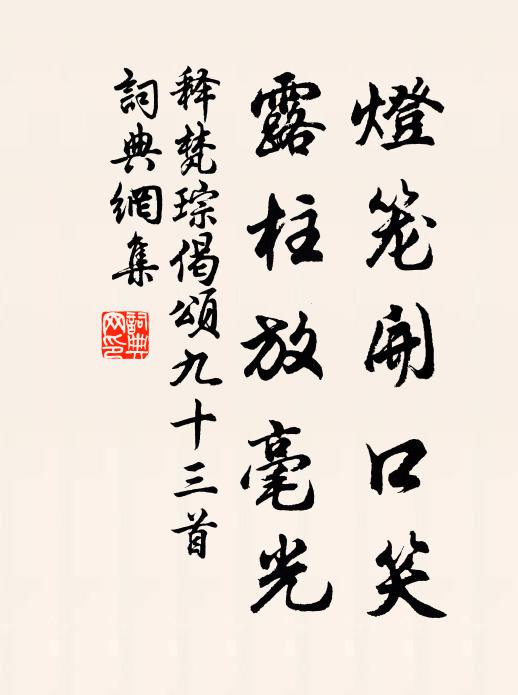 燈笼開口笑
露柱放毫光
释梵琮偈頌九十三首
詞典網集
詞典网印